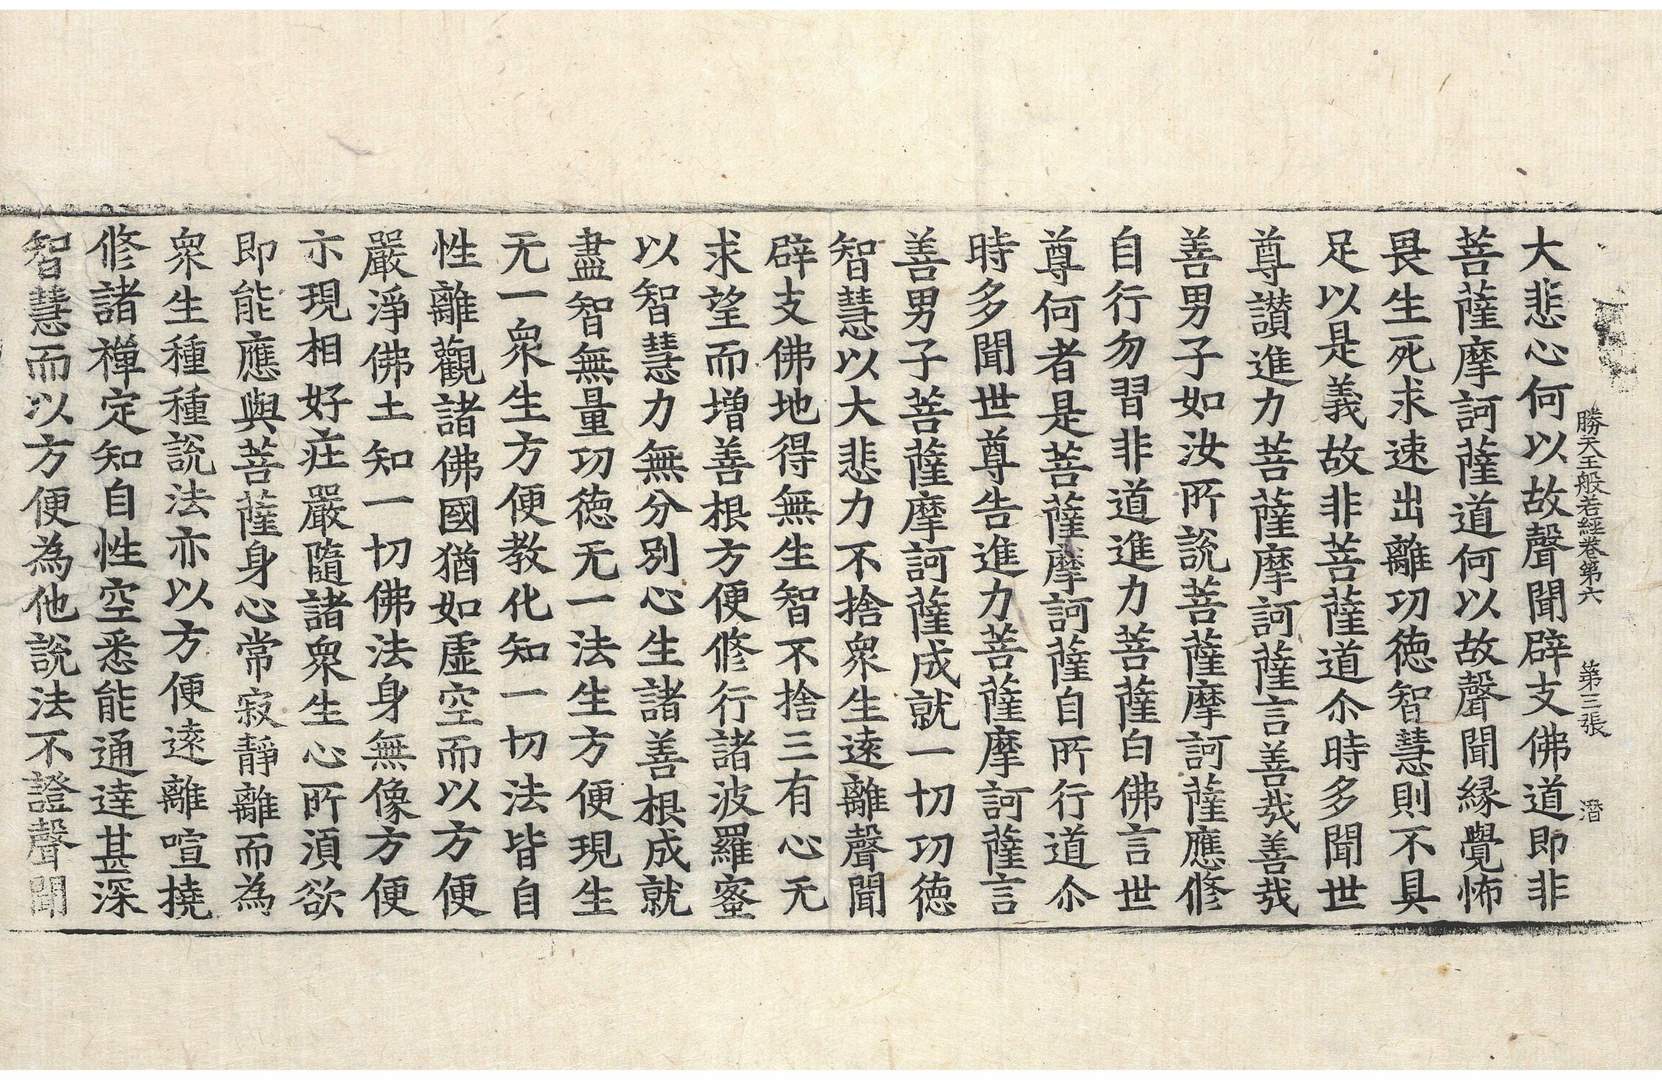 勝天王般若經卷第六　第三張　潛
大悲心何以故聲聞辟支佛道即非
菩薩摩訶薩道何以故聲聞緣覺怖
畏生死求速出離功德智慧則不具
足以是義故非菩薩道尒時多聞世
尊讃進力菩薩摩訶薩言善哉善哉
善男子如汝所說菩薩摩訶薩應修
自行勿習非道進力菩薩白佛言世
尊何者是菩薩摩訶薩自所行道尒
時多聞世尊告進力菩薩摩訶薩言
善男子菩薩摩訶薩成就一切功德
智慧以大悲力不捨衆生遠離聲聞
辟支佛地得無生智不捨三有心无
求望而增善根方便修行諸波羅蜜
以智慧力無分別心生諸善根成就
盡智無量功德无一法生方便現生
无一衆生方便教化知一切法皆自
性離觀諸佛國猶如虛空而以方便
嚴淨佛土知一切佛法身無像方便
示現相好庄嚴隨諸衆生心所湏欲
即能應與菩薩身心常寂靜離而為
衆生種種說法亦以方便遠離喧撓
修諸禪定知自性空悉能通達甚深
智慧而以方便為他說法不證聲聞